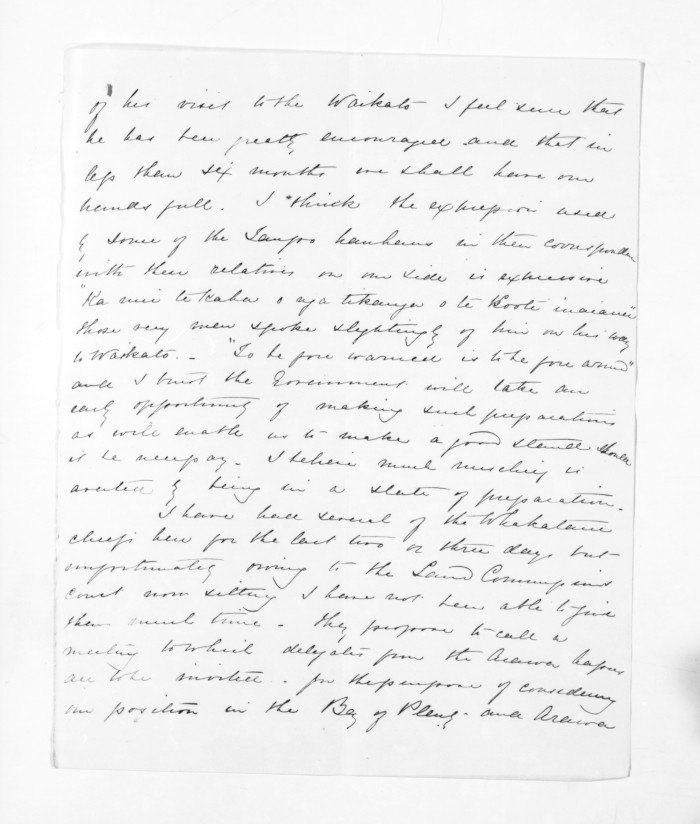 of his visit to the Waikato I feel sure that
he has been greatly encouraged and that in
less than six months we shall have our
hands full. I think the expression used
by some of the hauhaus in their correspondence
with their relatives on our side is expressive
"Ka nui te kaha o nga tikanga o te Kooti inaianei"
those very men spoke slightingly of him on his way
to Waikato. - "To be fore warned is to be fore armed"
and I trust the Government will take an
early opportunity of making such preparations
as will enable us to make a good stand should
it be necessary. I believe much mischief is
averted by being in a state of preparation.
I have had several of the Whakatane
chiefs here for the last two or three days but
unfortunately owing to the Land Commissions
court now sitting I have not been able to give
them much time. They propose to call a
meeting to which delegates from the Arawa hapus
are to be invited - for the purpose of considering
our position in the Bay of Plenty - and Arawa